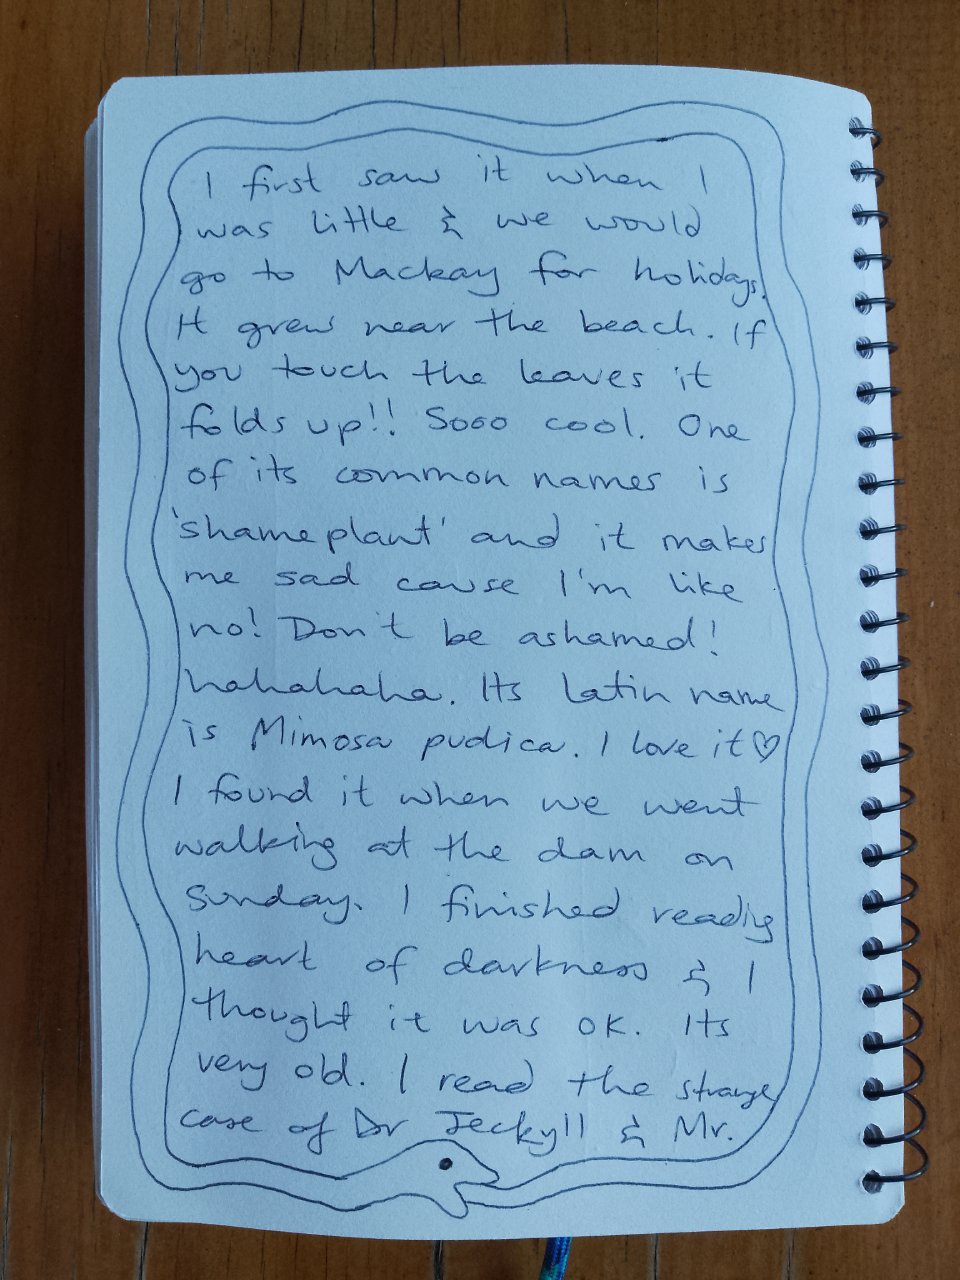 I first saw it when I
was little & we would
go to Mackay for holidays.
It grew near the beach. If
you touch the leaves it
folds up!! Sooo cool. One
of its common names is
'shame plant' and it makes
me sad cause I'm like
no! Don't be ashamed!
hahahaha. Its Latin name
is Mimosa pudica. I love it♡
I found it when we went
walking at the dam on
Sunday. I finished reading
heart of darkness & I
thought it was ok. Its
very old. I read the strange
case of Dr Jeckyll & Mr.